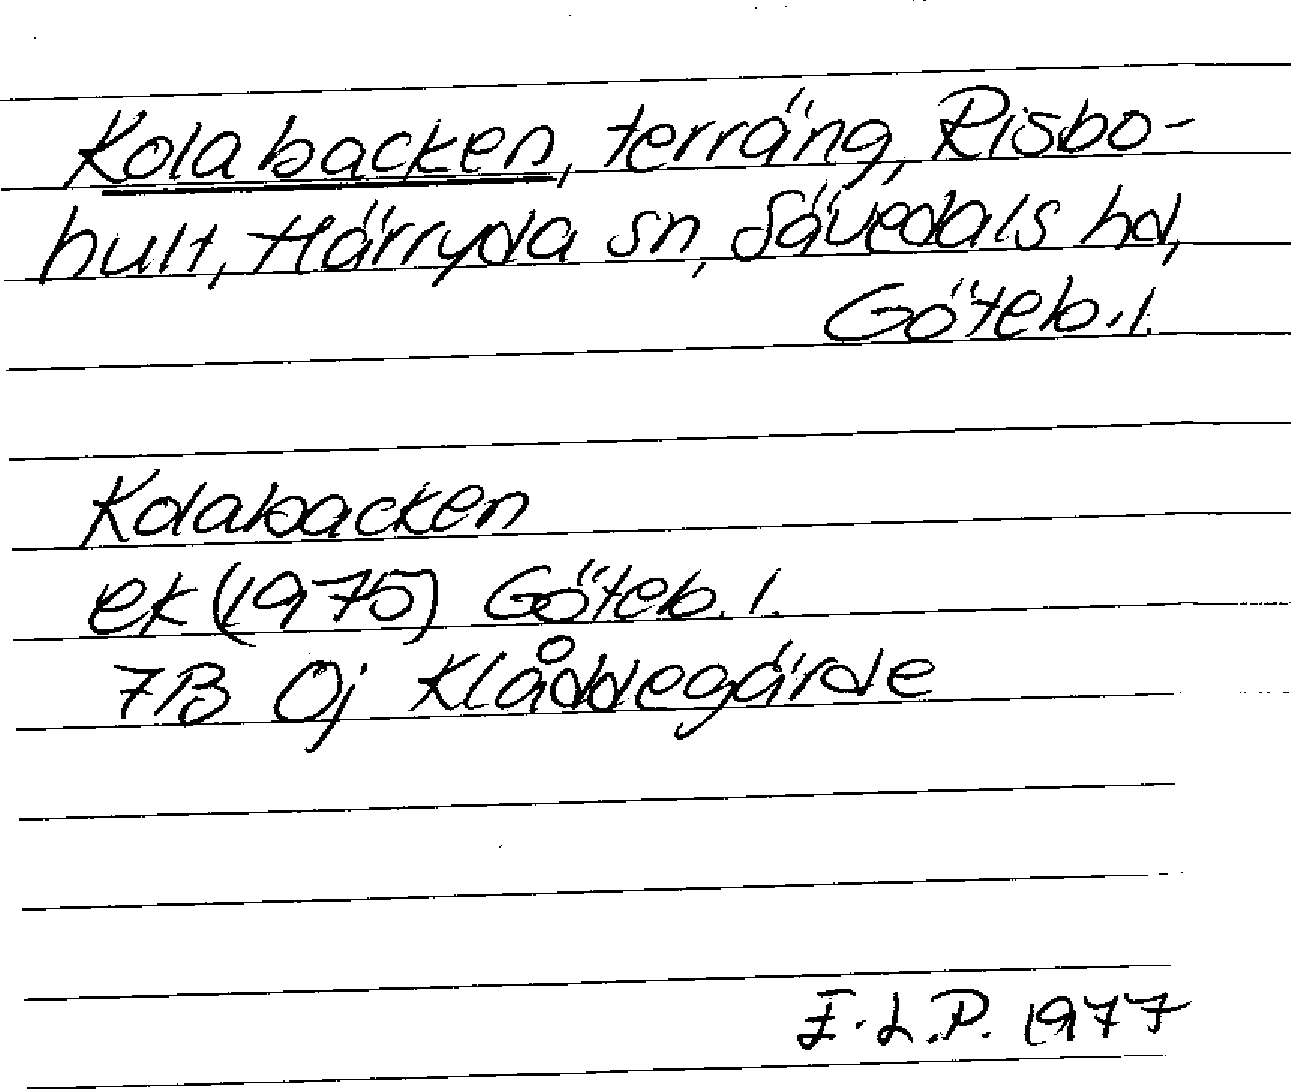 Kolabacken, terräng, Risbo-
hult, Härryda sn, Sävedals hd,
Göteb. l.
Kolabacken
ek (1975) Göteb. l.
7B 0j Klåddegärde
E.L.P. 1977